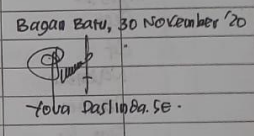 Bagan Batu, 30 November '20
Yova Daslinda.SE.